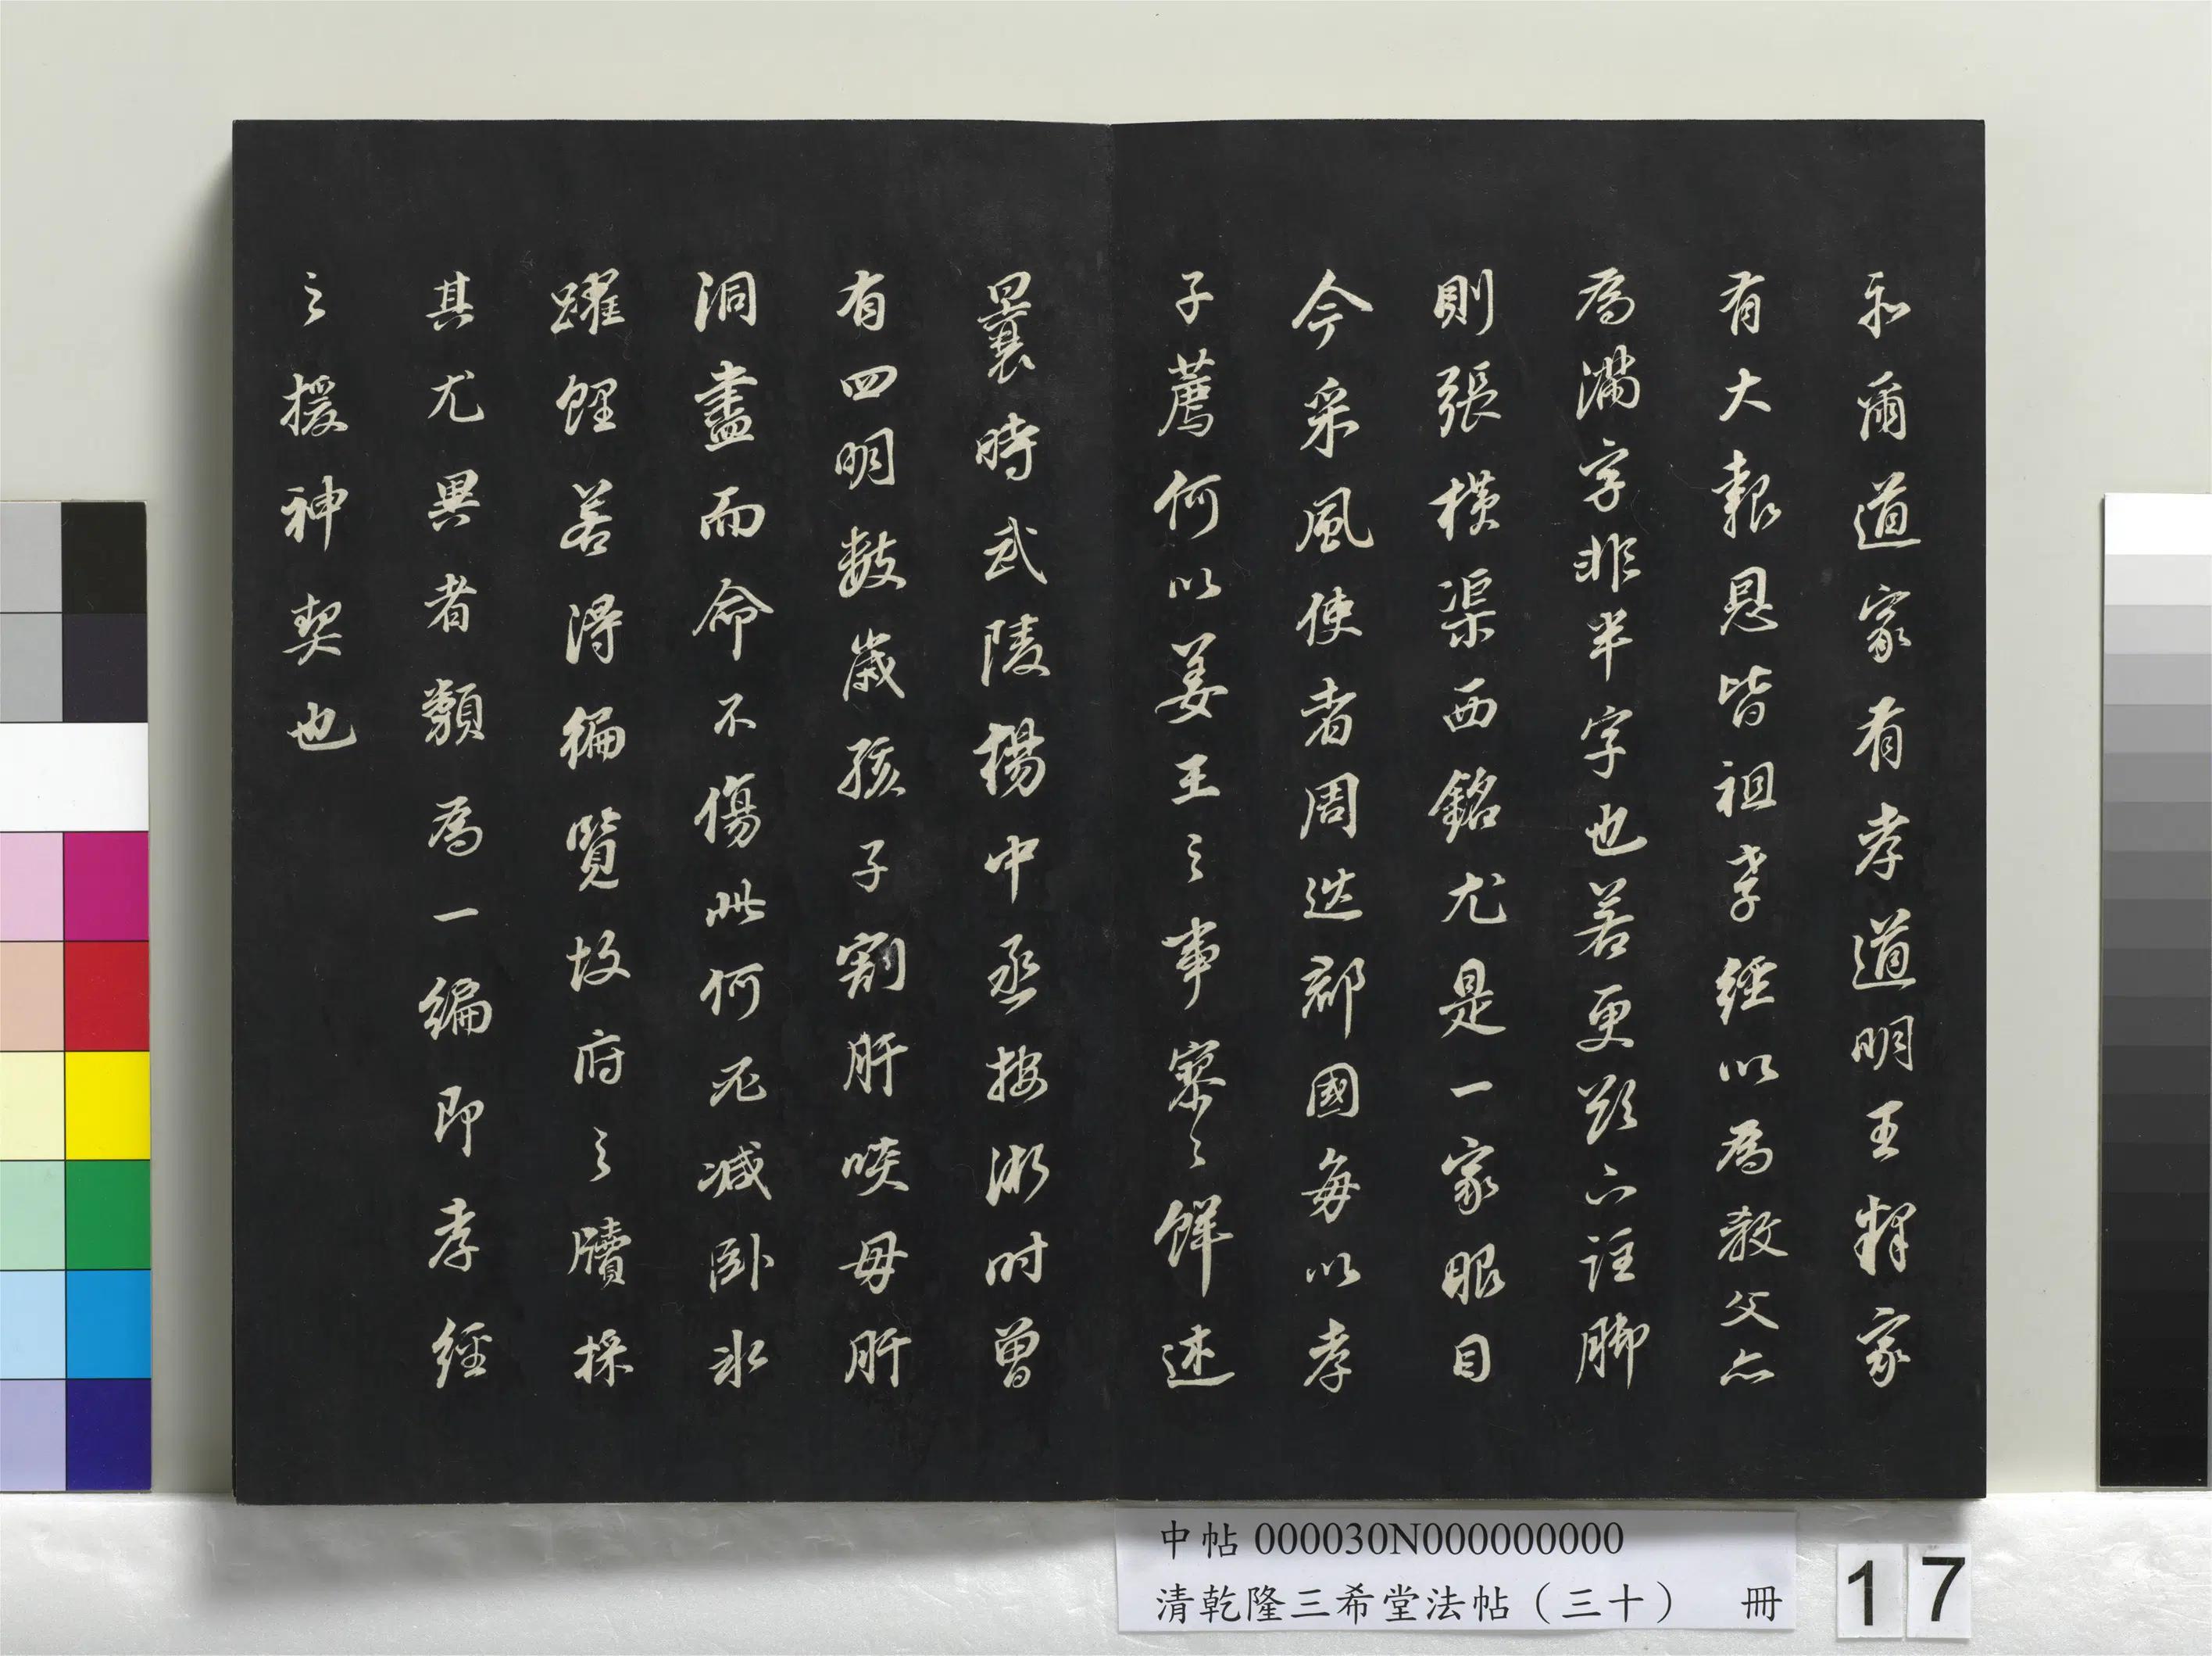 和爾道家有孝道明王釋家
有大報恩皆祖孝經以為教父亦
為滿字非半字也若更欲下註脚
則張橫渠西銘尤是一家眼目
今采風使者周迭郡國每以孝
子薦何以姜王之事寥々鮮述
曩時武陵楊中丞按浙時曾
有四明數歲孩子割肝啖母肝
洞盡而命不傷此何死減卧氷
躍鯉若得徧覽故府之牘採
其尤異者類為一編即孝經
之援神契也
中帖 000030N000000000
清乾隆三希堂法帖（三十） 冊
17